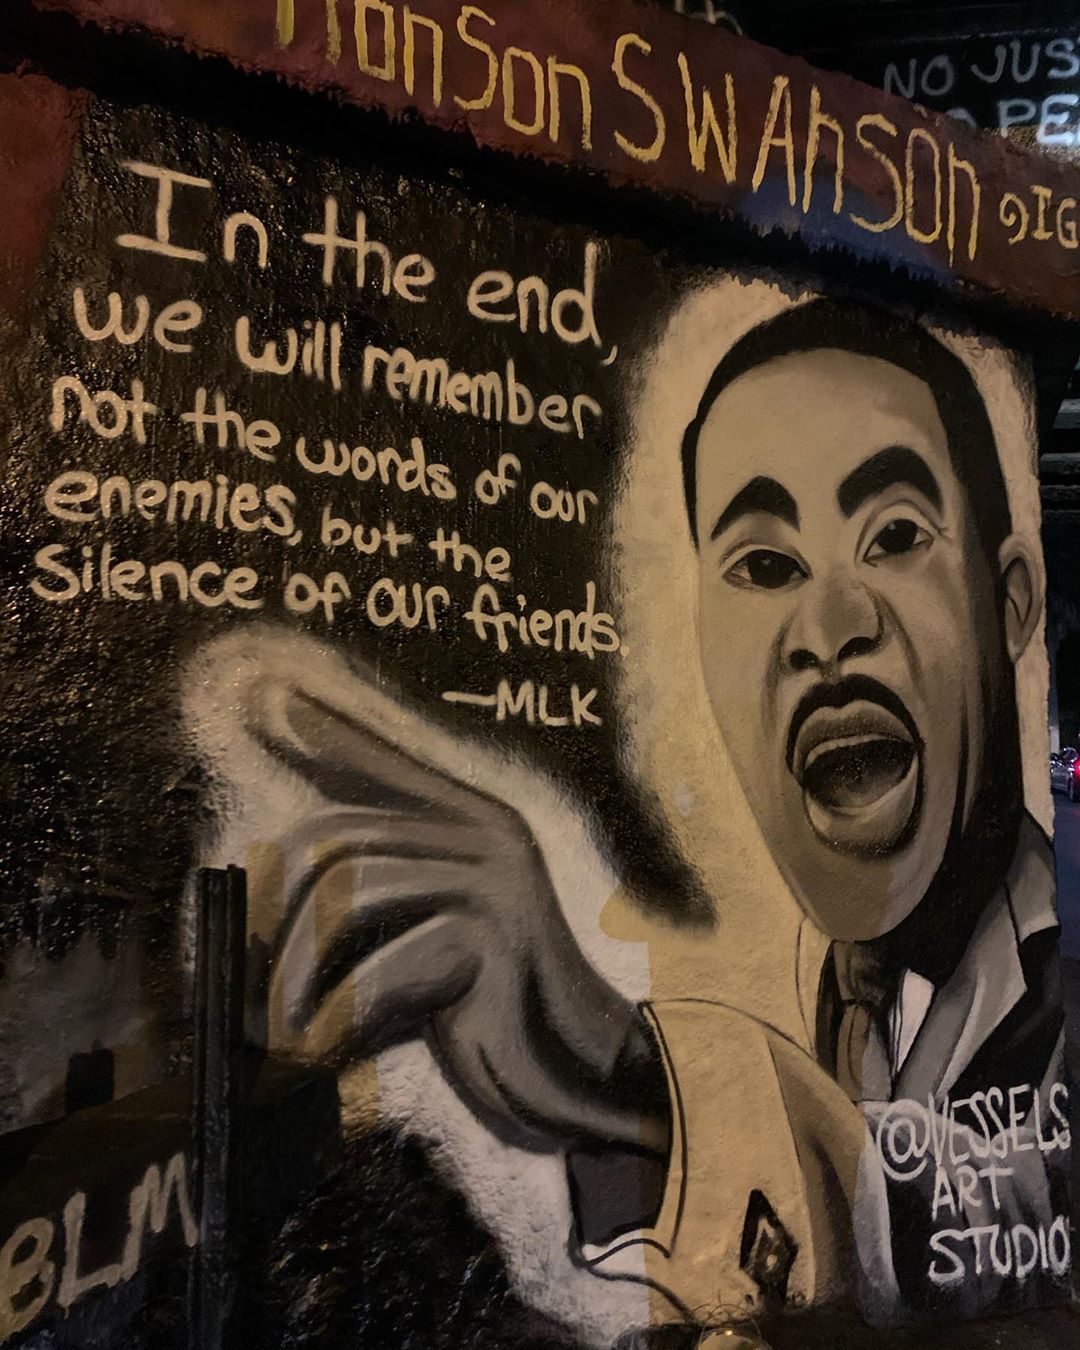 MonSon SWAhSOn
NO JUS
PE
In the end,
we will remember
not the words of our
enemies, but the
Silence of our friends.
—MLK
@VESSELS
ART
STUDIO
BLM